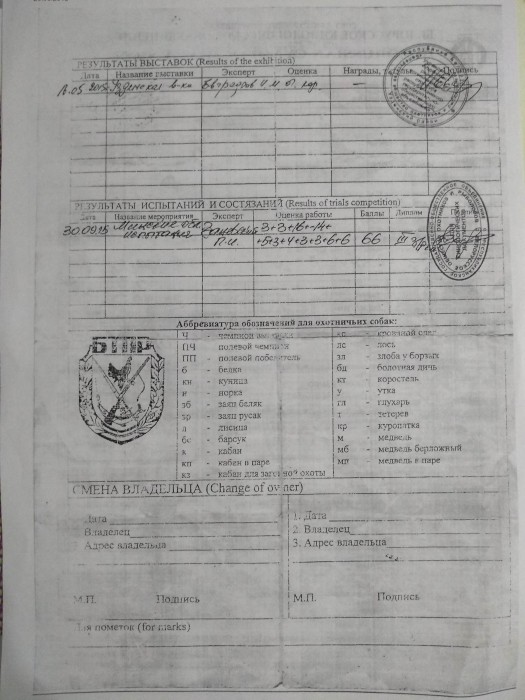 РЕЗУЛЬТАТЫ ВЫСТАВОК (Results of the exhibition)
Дата Название выставки Эксперт Оценка Награды, Подпись
РЕЗУЛЬТАТЫ ИСПЫТАНИЙ И СОСТЯЗАНИЙ (Results of trials competition)
Дата Название мероприятия Эксперт Оценка работы Баллы Диплом
30.09.15 3+3+16+14+
П.И. +5+3+4+3+3+6+6 66 III
Аббревиатура обозначений для охотничьих собак:
БТПР
Ч - чемпион
ПЧ - полевой чемпион
ПП - полевой победитель
б - белка
кн - куница
н - норка
зб - заяц беляк
зр - заяц русак
л - лисица
бс - барсук
к - кабан
кп - кабан в паре
кз - кабан для загонной охоты
- кровяной след
лс - лось
зл - злоба у бортвых
бд - болотная дичь
кт - коростель
у - утка
гл - глухарь
т - тетерев
кр - куропатка
м - медведь
мб - медведь берложный
мп - медведь в паре
СМЕНА ВЛАДЕЛЬЦА (Change of owner)
Дата
Владелец
Адрес владельца
М.П. Подпись
1. Дата
2. Владелец
3. Адрес владельца
М.П. Подпись
Для пометок (for marks)